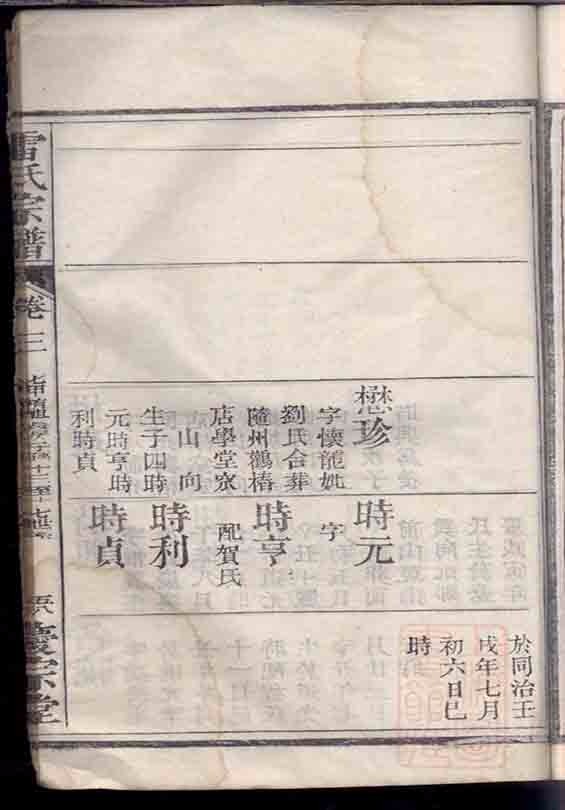 於同治壬
戌年七月
初六日巳
時
懋珍
字懷龍妣
劉氏合葬
隨州鸛樁
店學堂寮
山向
生子四時
元時亨時
利時貞
時元
字
時亨
配賀氏
時利
時貞
雷氏宗譜
卷三